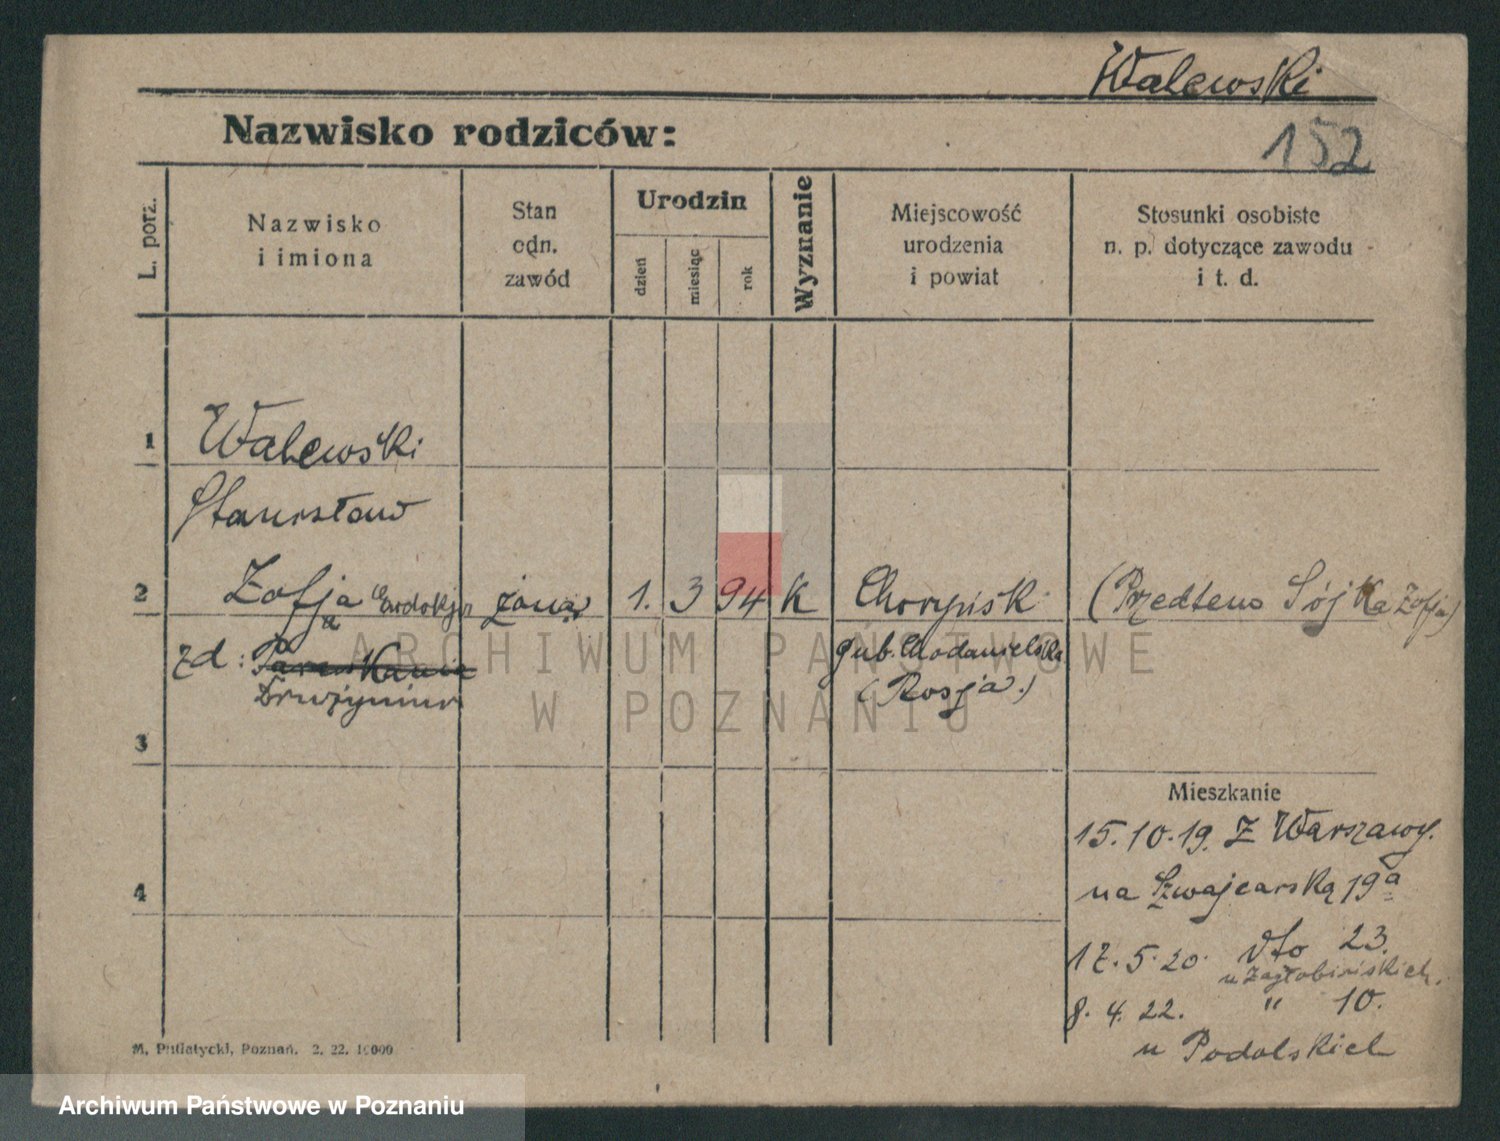 Walewski
Nazwisko rodziców:
152
L. porz.
Nazwisko
i imiona
Stan
odn.
zawód
Urodzin
dzień
miesiąc
rok
Wyznanie
Miejscowość
urodzenia
i powiat
Stosunki osobiste
n. p. dotyczące zawodu
i t. d.
1
Walewski
Stanisław
2
Zofja
żona
1. 3 94 K
(Przedtem Sójka Zofja)
zd:
gub.
(Rosja.)
3
4
Mieszkanie
15.10.19. Z Warszawy.
na Szwajcarską 19a
17.5.20. dto 23.
u Zagłobińskich.
8.4.22. " 10.
u Podolskich
M. Putiatycki, Poznań. 2. 22. 10000
ARCHIWUM PAŃSTWOWE
W POZNANIU
Archiwum Państwowe w Poznaniu